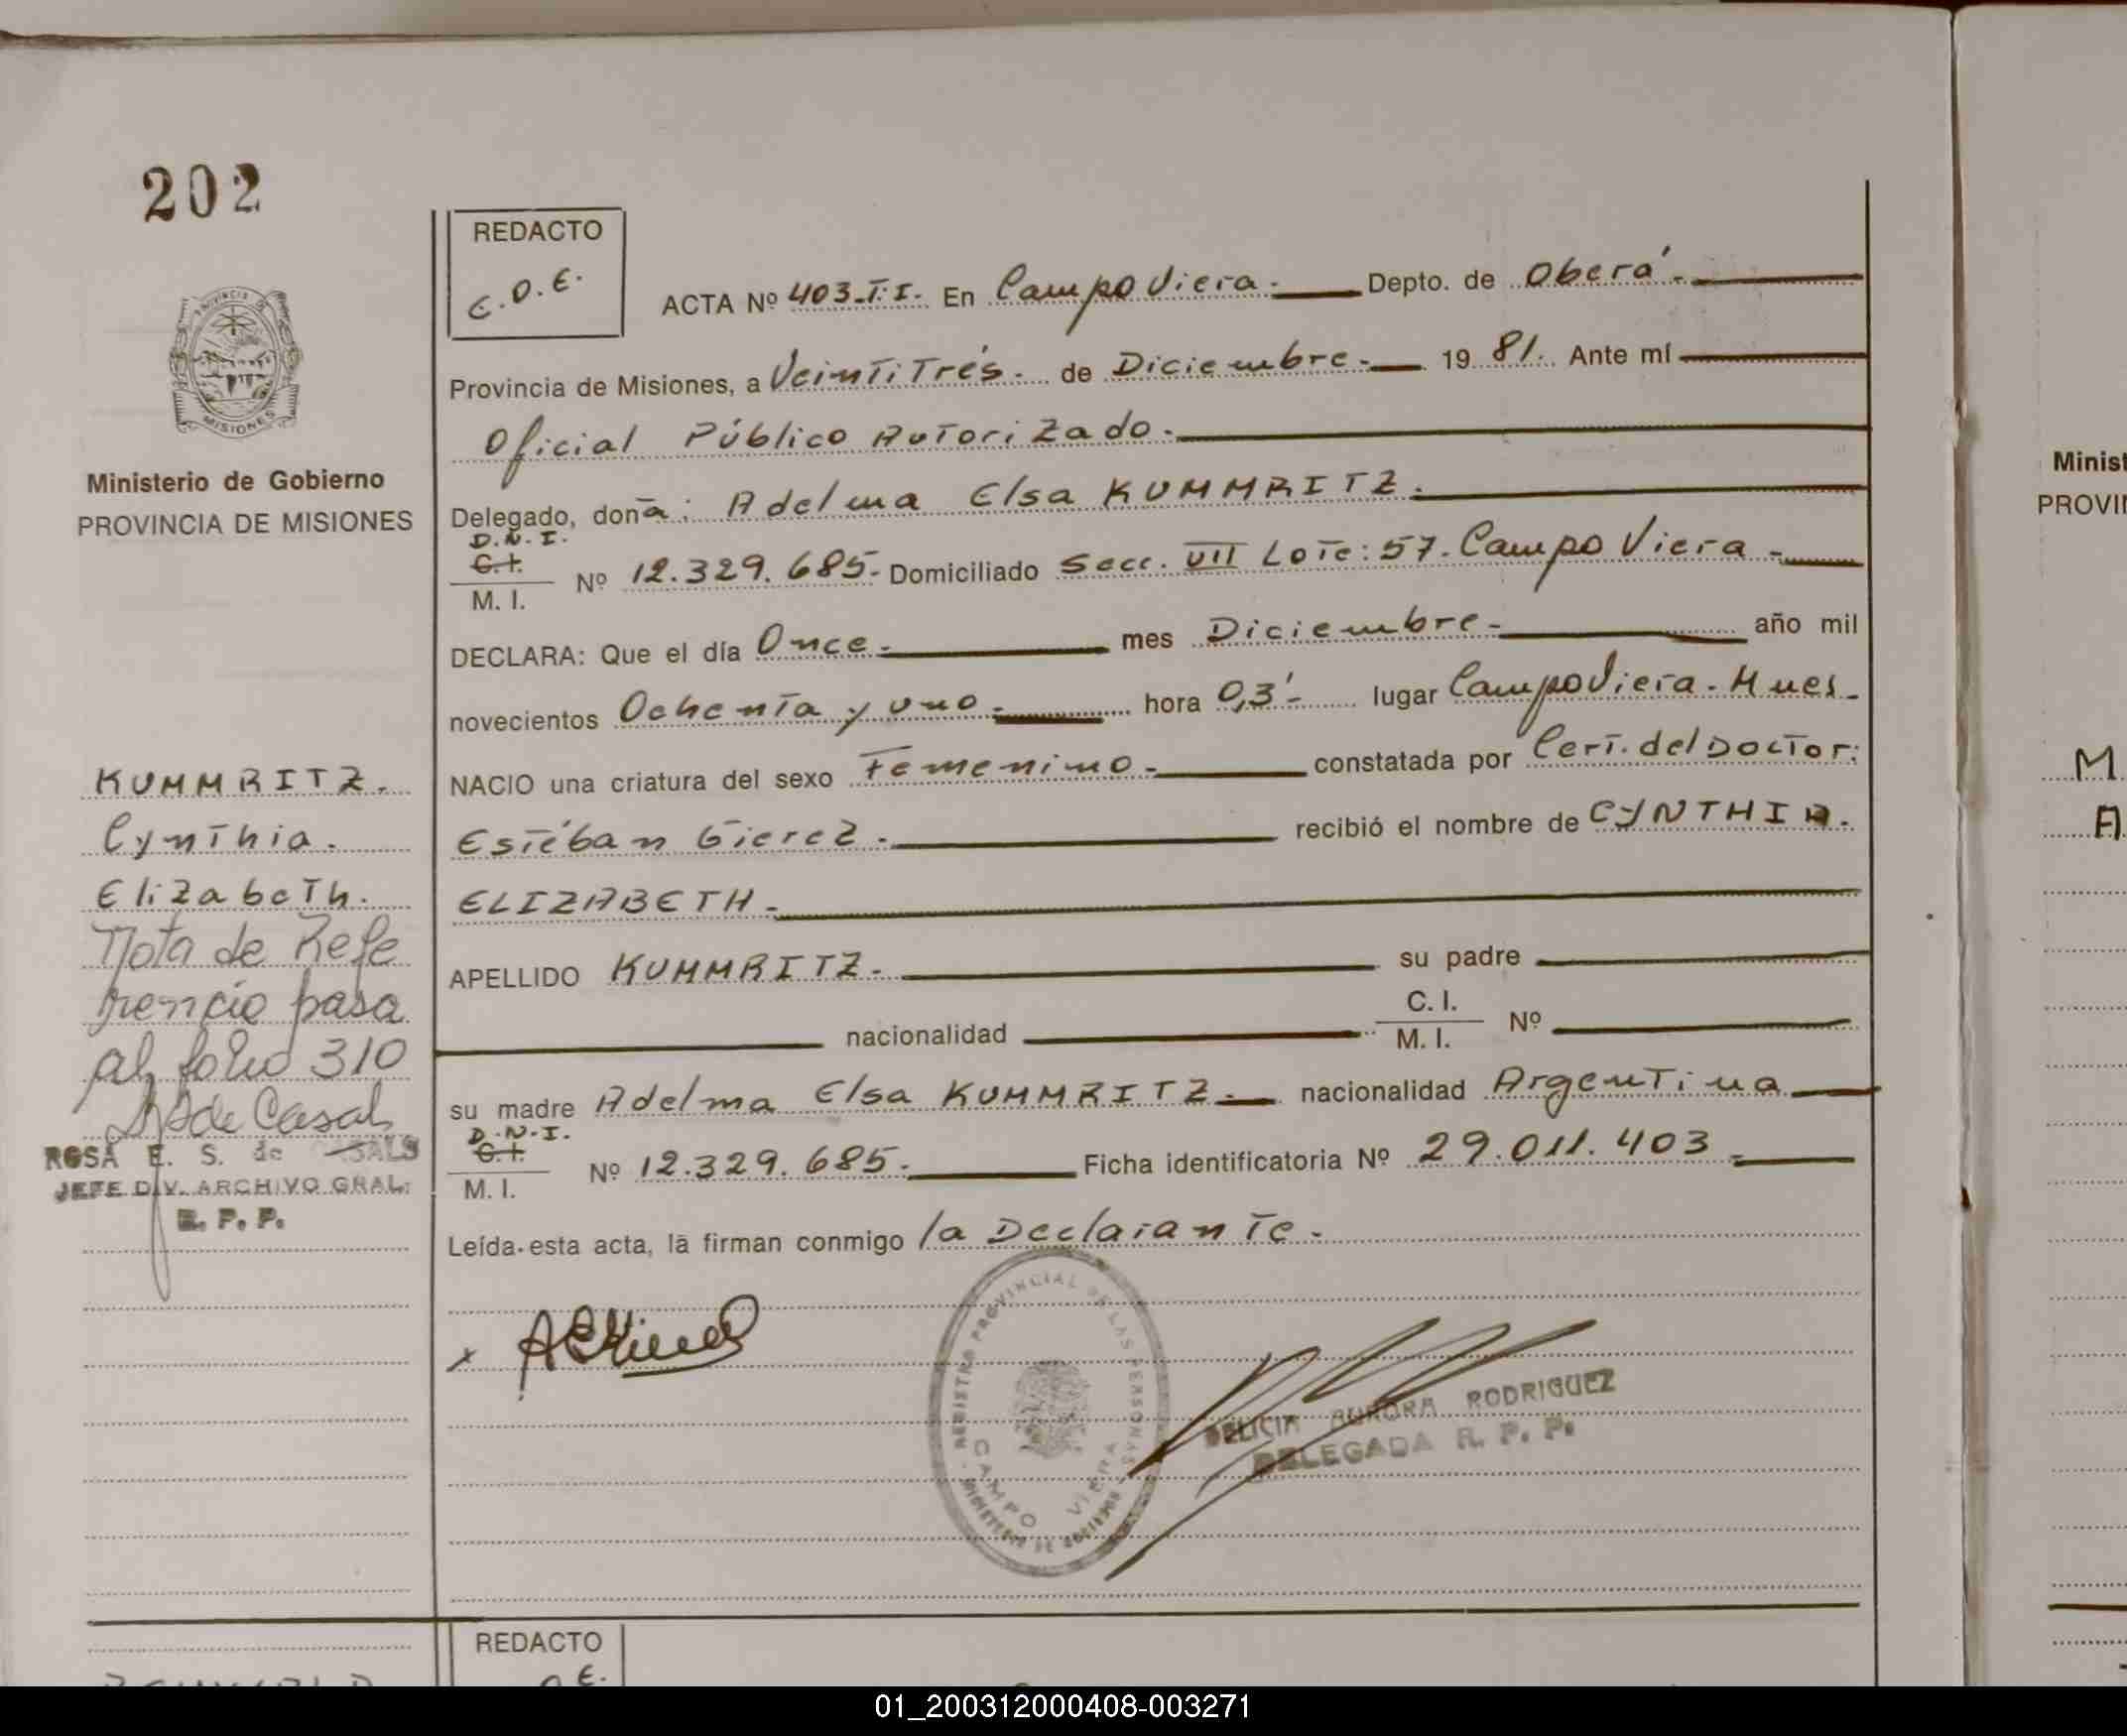 202
REDACTO
C.O.E.
ACTA Nº 403.T.I. En Campo Viera.- Depto. de Oberá.-
Provincia de Misiones, a Veintitrés. de Diciembre.- 19 81. Ante mí
Oficial Público Autorizado.-
Delegado, doña: Adelma Elsa KUMMRITZ.
D.N.I.
C.I.
M. I.
Nº 12.329.685.- Domiciliado Secc. VII Lote: 57. Campo Viera -
DECLARA: Que el día Once.- mes Diciembre.- año mil
novecientos Ochenta y uno.- hora 0,3'- lugar Campo Viera. Mnes.
NACIO una criatura del sexo Femenino.- constatada por Cert. del Doctor:
Estéban Gierez.- recibió el nombre de CYNTHIA.
ELIZABETH.-
APELLIDO KUMMRITZ.- su padre
nacionalidad C. I. M. I. Nº
su madre Adelma Elsa KUMMRITZ.- nacionalidad Argentina
D.N.I.
C.I.
M. I.
Nº 12.329.685.- Ficha identificatoria Nº 29.011.403.-
Leída esta acta, la firman conmigo la Declarante.-
x
REGISTRO PROVINCIAL DE LAS PERSONAS
CAMPO VIERA
DELICIA AURORA RODRIGUEZ
DELEGADA R. P. P.
PROVINCIA DE
MISIONES
Ministerio de Gobierno
PROVINCIA DE MISIONES
KUMMRITZ.
Cynthia.
Elizabeth.
Nota de Refe
rencia pasa
al folio 310
ROSA E. S. de CASALS
JEFE DIV. ARCHIVO GRAL.
R. P. P.
REDACTO
Minist
PROVIN
M
A
01_200312000408-003271